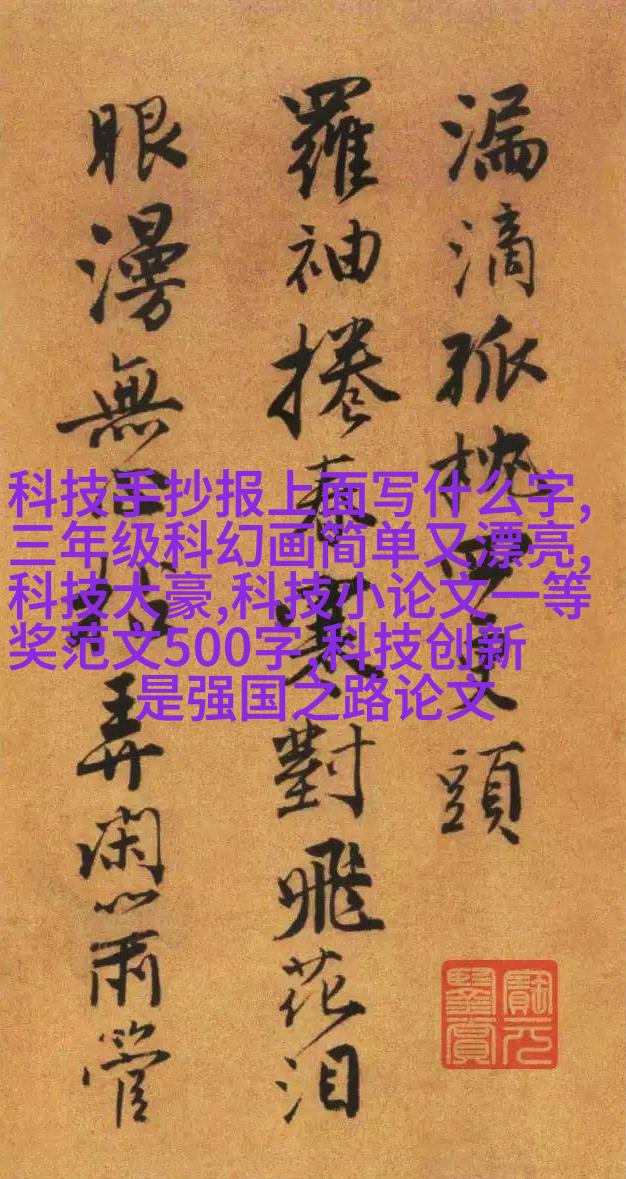 漏滴孤枕頭
羅袖捲春寒對飛花泪
眼漫無弄閑管
科技手抄报上面写什么字,
三年级科幻画简单又漂亮,
科技大豪,科技小论文一等
奖范文500字,科技创新
是强国之路论文